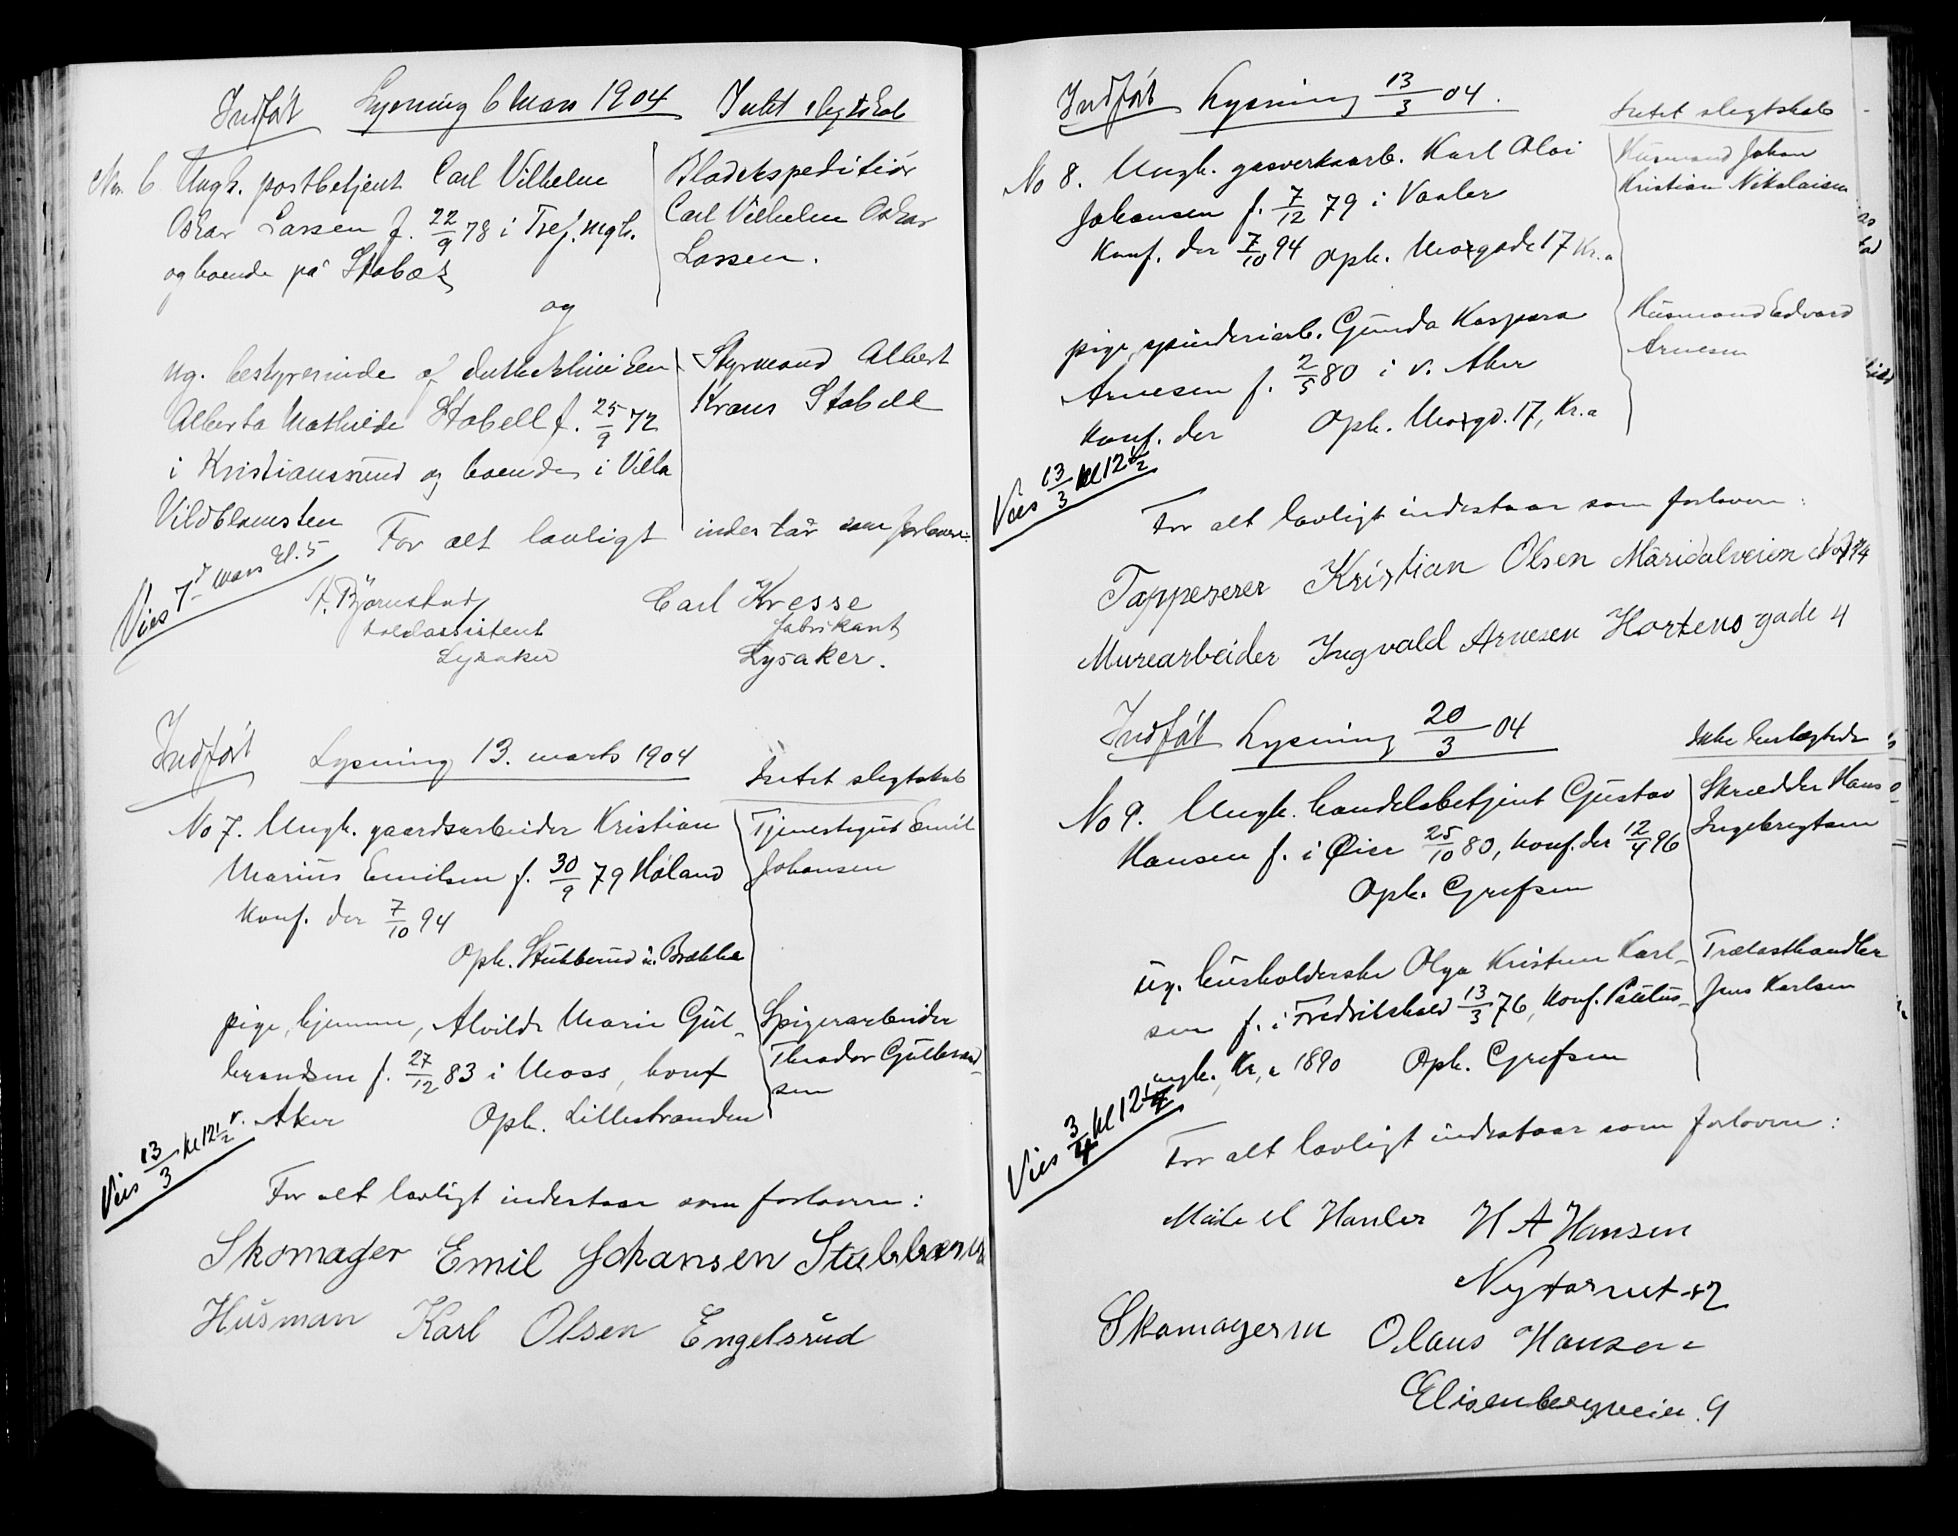 Indført Lysning 6 Mars 1904 Intet slegtskab
No. 6 Ungk. postbetjent Carl Vilhelm
Oskar Larsen f. 22/9 78 i Tref. mgh.
og boende på Stabæk
Bladekspeditiør
Carl Vilhelm Oskar
Larsen.
og
ug. bestyrerinde af
Alberta Mathilde Stabell f. 25/9 72
i Kristianssund og boende i Villa
Vildblomsten
Styrmand Albert
Krans Stabell
For alt lovligt indestår som forlovere:
Vies 7de mars kl. 5
A. Bjørnstad
toldassistent
Lysaker
Carl Kresse
fabrikant
Lysaker.
Indført Lysning 13. marts 1904
Intet slegtskab
No 7. Ungk. gaardsarbeider Kristian
Marius Emilsen f. 30/9 79 Høland
Konf. der 7/10 94
Oph. Stubberud i. Brekke
Tjenestegut Emil
Johansen
pige, hjemme, Alvilde Marie Gul-
brandsen f. 27/12 83 i Moss, konf
v. Aker Oph. Lillestranden
Spigerarbeider
Theodor Gulbrand-
sen
Vies 13/3 kl 12 1/2
For alt lovligt indestaar som forlovere:
Skomager Emil Johansen Stubberud
Husman Karl Olsen Engelsrud
Indført Lysning 13/3 04.
Intet slegtskab
No 8. Ungk. gasverksarb. Karl Oloi
Johansen f. 7/12 79 i Vaaler
Konf. der 7/10 94 Oph. Maxgade 17 Kr.a
Husmand Johan
Kristian Nikolaisen
pige, spinderiarb. Gunda Kaspara
Arnesen f. 2/5 80 i v. Aker
konf. der Oph. Maxgd. 17, Kr.a
Husmand Edvard
Arnesen
Vies 13/3 kl 12 1/2
For alt lovligt indestaar som forlovere:
Tappeserer Kristian Olsen Maridalveien
Murearbeider Ingvald Arnesen Hortens gade 4
Indført Lysning 20/3 04
Ikke beslægtede
No 9. Ungk. handelsbetjent Gustav
Hansen f. i Øier 25/10 80, konf. der 12/4 96
Oph. Grefsen
Skrædder Hans
Ingebregtsen
ug. husholderske Olga Kristine Karl-
sen f. i Fredrikshald 13/3 76, konf. Paulus-
mgh., Kr.a 1890 Oph. Grefsen
Trælasthandler
Jens Karlsen
Vies 3/4 kl 12 1/4
For alt lovligt indestaar som forlovere:
H A Hansen
Nytorvet
Skomagerm Olaus Hansen
Elisenbergveien 9